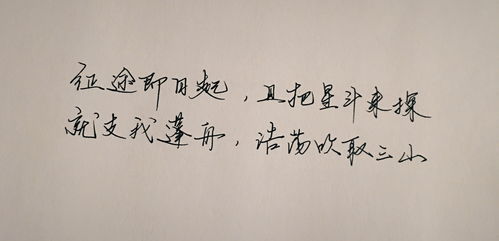 征途即日起，且把星斗来操
就支我蓬舟，浩荡吹取三山